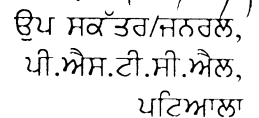 ਉਪ ਸਕੱਤਰ/ਜਨਰਲ,
ਪੀ.ਐਸ.ਟੀ.ਸੀ.ਐਲ,
ਪਟਿਆਲਾ